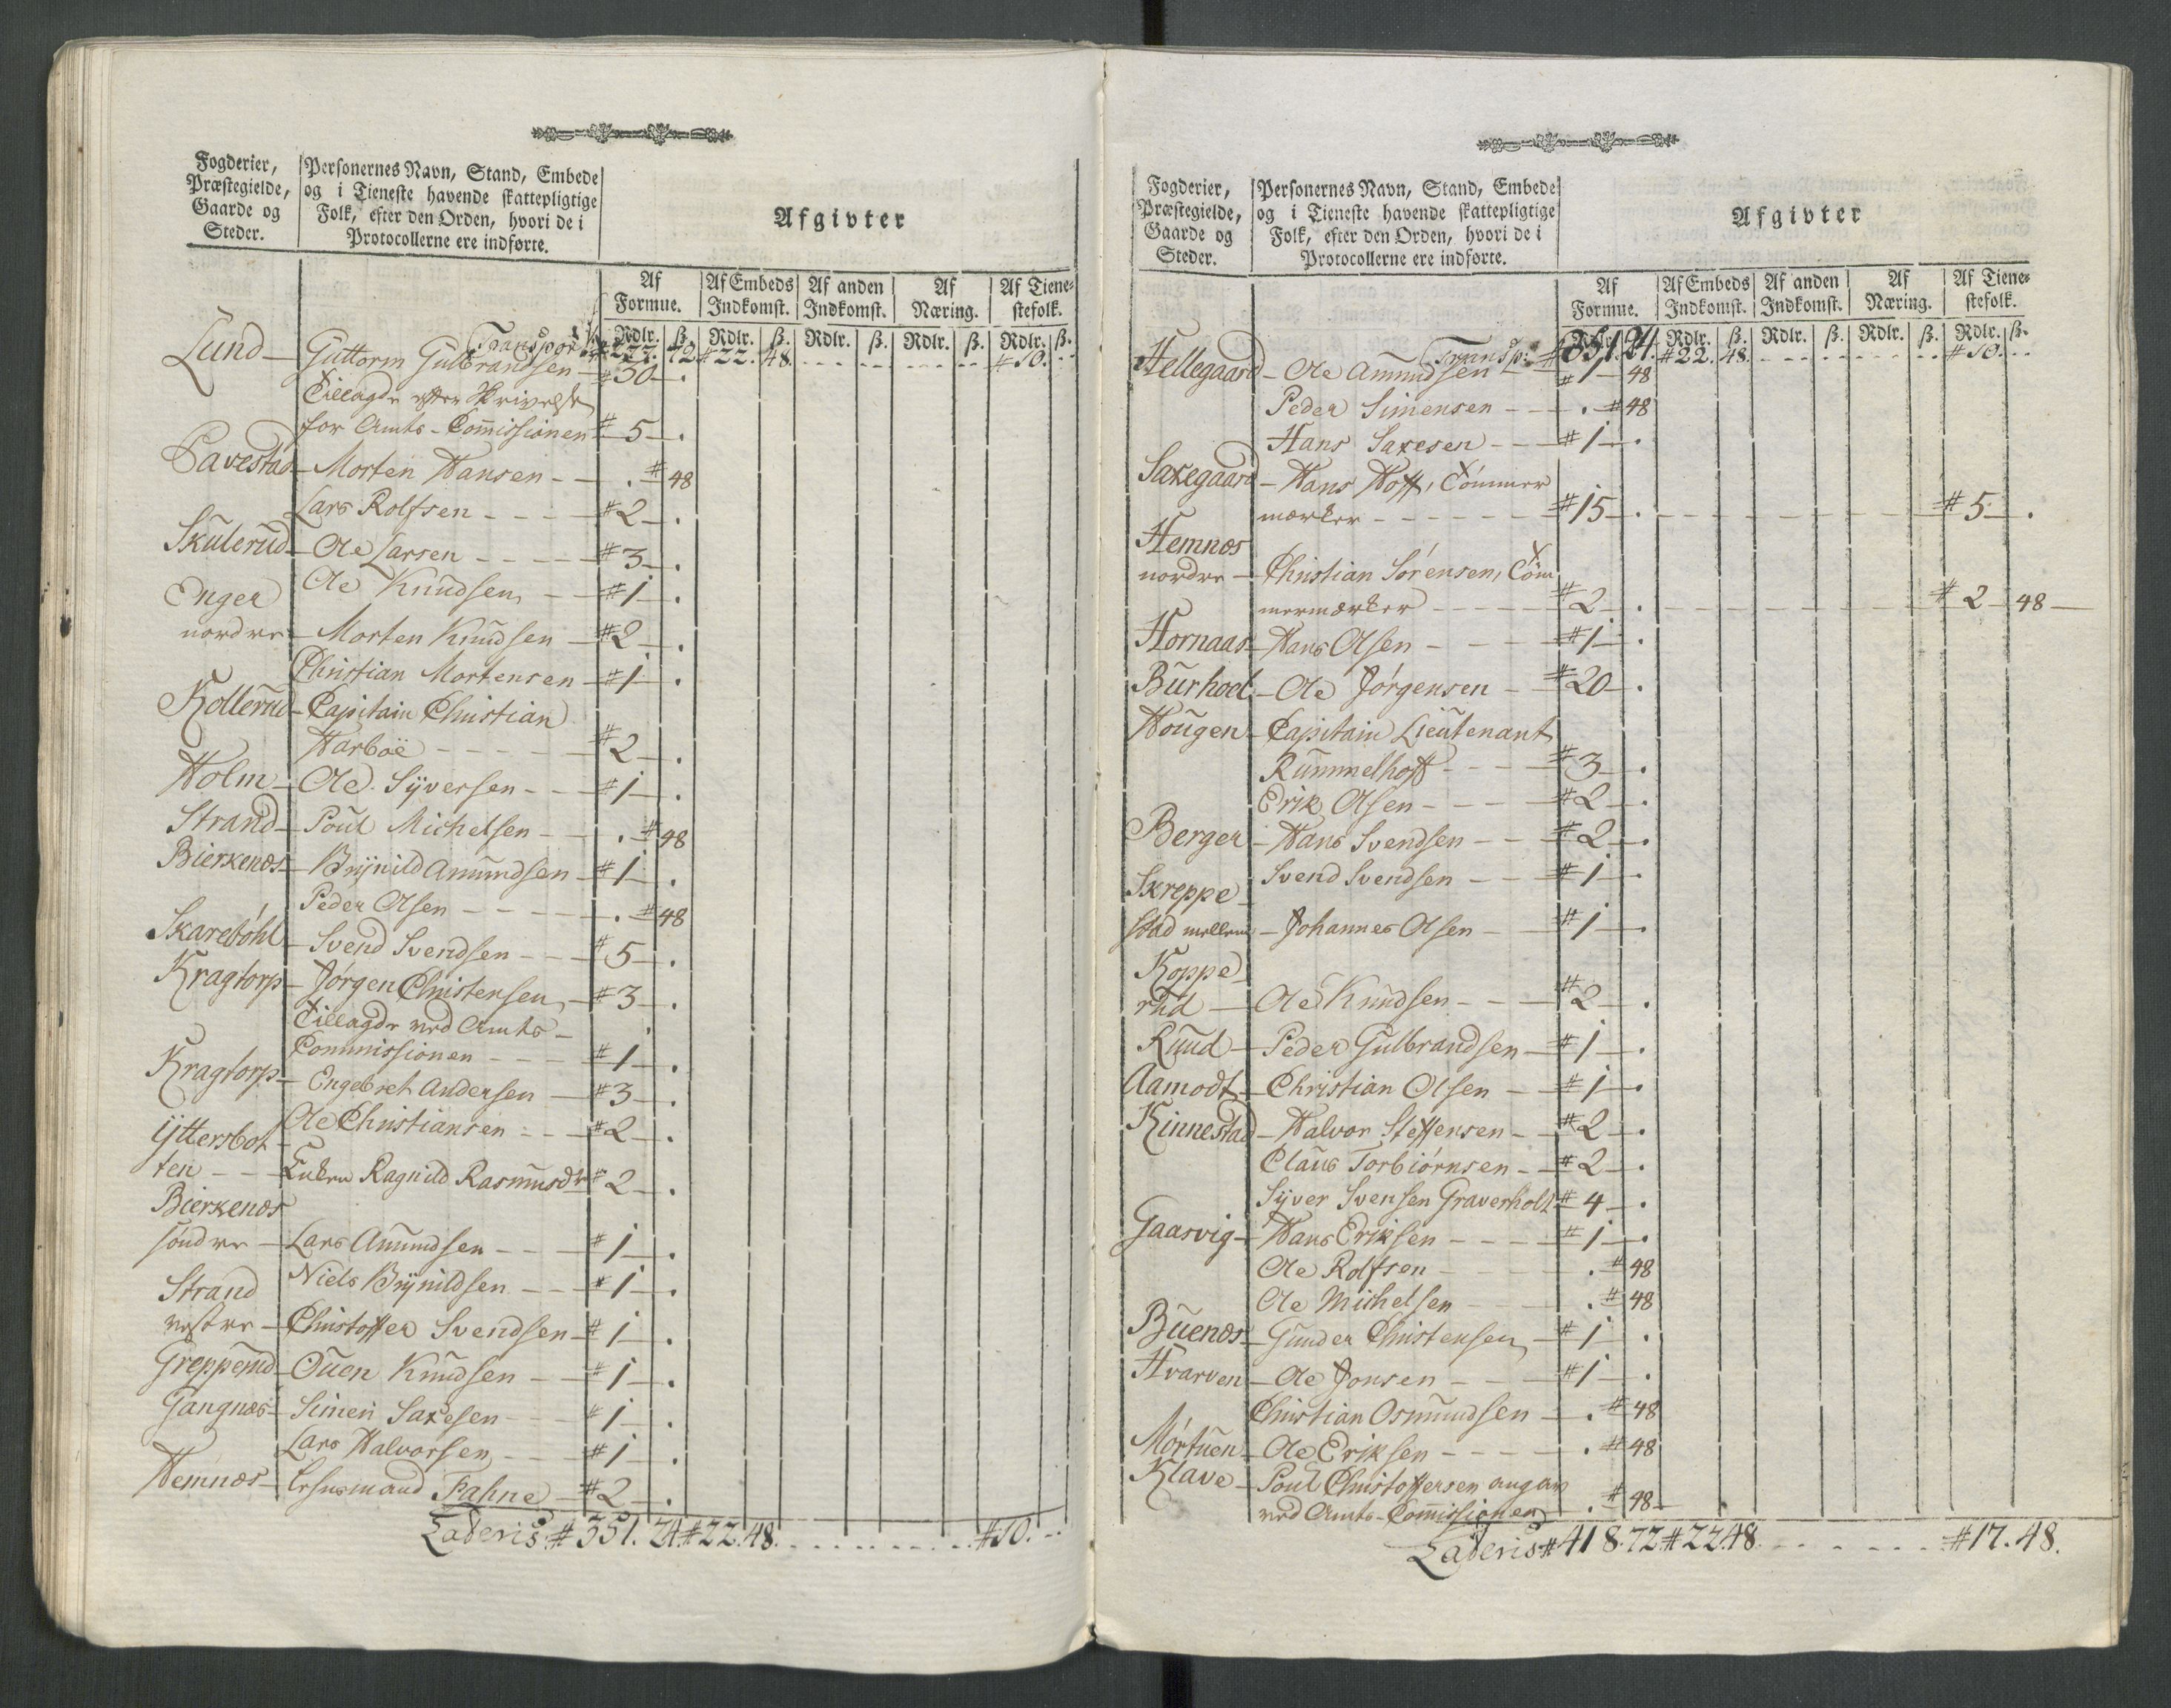 Fogderier, Præstegielde, Gaarde og Steder.
Personernes Navn, Stand, Embede og i Tieneste havende skattepligtige Folk, efter den Orden, hvori de i Protocollerne ere indførte.
Afgivter
Af Formue. Af Embeds Indkomst. Af anden Indkomst. Af Næring. Af Tienestefolk.
Rdlr. ß. Rdlr. ß. Rdlr. ß. Rdlr. ß. Rdlr. ß.
Transport # 277. 72 # 22. 48. # 10.
Lund – Guttorm Gulbrandsen – # 30 – .
Tillagde efter Skrivelse
for Amts-Com̄issionen # 5 – .
– Morten Hansen – – . # 48
Lars Rolfsen – – – # 2 – .
Skulerud – Ole Larsen – – – # 3 – .
Ole Knudsen – – # 1 – .
Enger
nordre – Morten Knudsen – # 2 – .
Christian Mortensen – # 1 – .
Kollerud – Capitain Christian
Harboe – – – – # 2 – .
Holm – Ole Syversen – – # 1 – .
Strand – Poul Michelsen – – . # 48
Bierkenæs – Brynild Amundsen – # 1 – .
Peder Olsen – – – – . # 48
Skarebøhl – Svend Svendsen – – # 5 – .
Kragtorp – Jørgen Christensen – # 3 – .
Tillagde ved Amts-
Commissionen – – – # 1 – .
Kragtorp – Engebret Andersen – # 3 – .
Ole Christiansen – – # 2 – .
Yttersbot-
ten – – Enken Ragnild Rasmusdr # 2 – .
Bierkenæs
søndre – Lars Amundsen – – – # 1 – .
Niels Brynildsen – – # 1 – .
Strand
vestre – Christoffer Svendsen – # 1 – .
Greppemd – Ouen Knudsen – – # 1 – .
Gangnæs – Simen Saxesen – – # 1 – .
Lars Halvorsen – – # 1 – .
Hemnæs – Lehnsmand Fahne – # 2 – .
Lateris # 351. 24. # 22. 48. # 10. –
Fogderier, Præstegielde, Gaarde og Steder.
Personernes Navn, Stand, Embede og i Tieneste havende skattepligtige Folk, efter den Orden, hvori de i Protocollerne ere indførte.
Afgivter
Af Formue. Af Embeds Indkomst. Af anden Indkomst. Af Næring. Af Tienestefolk.
Rdlr. ß. Rdlr. ß. Rdlr. ß. Rdlr. ß. Rdlr. ß.
Transp: # 351. 24. # 22. 48. # 10.
Hellegaard – Ole Amundsen – # 1 – 48
Peder Simensen – – – . # 48
Hans Saxesen – – # 1 – .
Saxegaard – Hans Hoff, Tømmer
mærker – – – – – # 15 – . # 5 – .
Hemnæs
nordre – Christian Sørensen, Tøm
mermærker – – – – # 2 – . # 2 – 48 –
Hornaas – Hans Olsen – – – # 1 – .
Burhoel – Ole Jørgensen – # 20 – .
Hougen – Capitain Lieutenant
Rummelhoff – – – # 3 – .
Erik Olsen – – – # 2 – .
Berger – Hans Svendsen – – # 2 – .
Svend Svendsen – – # 1 – .
Skreppe-
stad mellem – Johannes Olsen – # 1 – .
Koppe-
rud – Ole Knudsen – – # 2 – .
Ruud – Peder Gulbrandsen – # 1 – .
Aamodt – Christian Olsen – # 1 – .
Kinnestad – Halvor Steffensen – # 2 – .
Claus Torbiørnsen – # 2 – .
Syver Svensen Graverholt # 4 – .
Gaasvig – Hans Eriksen – – – # 1 – .
Ole Rolfsen – – – . # 48
Ole Michelsen – – . # 48
Buenæs – Gunder Christensen – # 1 – .
Hvarven – Ole Jonsen – – – # 1 – .
Christian Osmundsen – . # 48
Mørtuen – Ole Eriksen – – – – . # 48
Klave – Poul Christoffersen
ved Amts-Com̄issionen . # 48 –
Lateris # 418. 72 # 22. 48. # 17. 48.